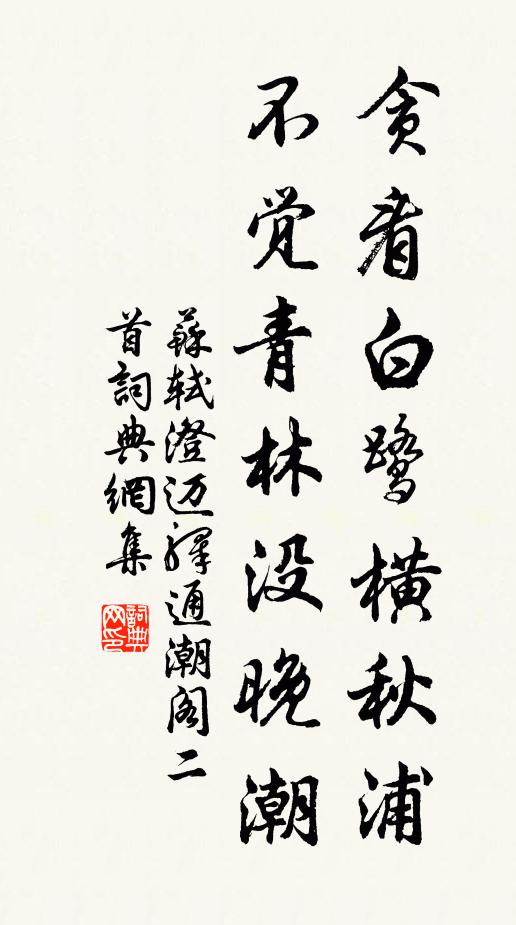 贪看白鹭横秋浦
不觉青林没晚潮
蘇軾澄迈驛通潮阁二
首詞典網集
詞典
网印